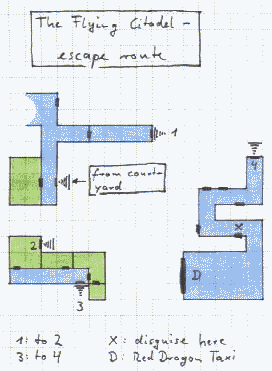 The Flying Citadel -
escape route
1
from court-
yard
4
2
X
D
3
1: to 2
3: to 4
X: disguise here
D: Red Dragon Taxi